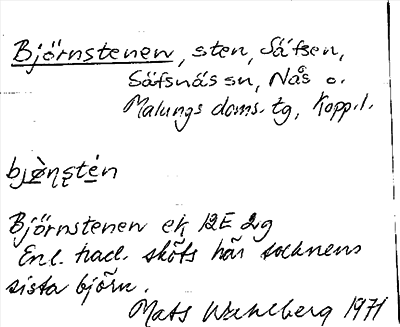 Björnstenen, sten, Säfsen,
Säfsnäs sn, Nås o.
Malungs doms. tg, Koppl.
bjø̀ṇʂtén
Björnstenen ek 12E 2g
Enl. trad. sköts här socknens
sista björn.
Mats Wahlberg 1971